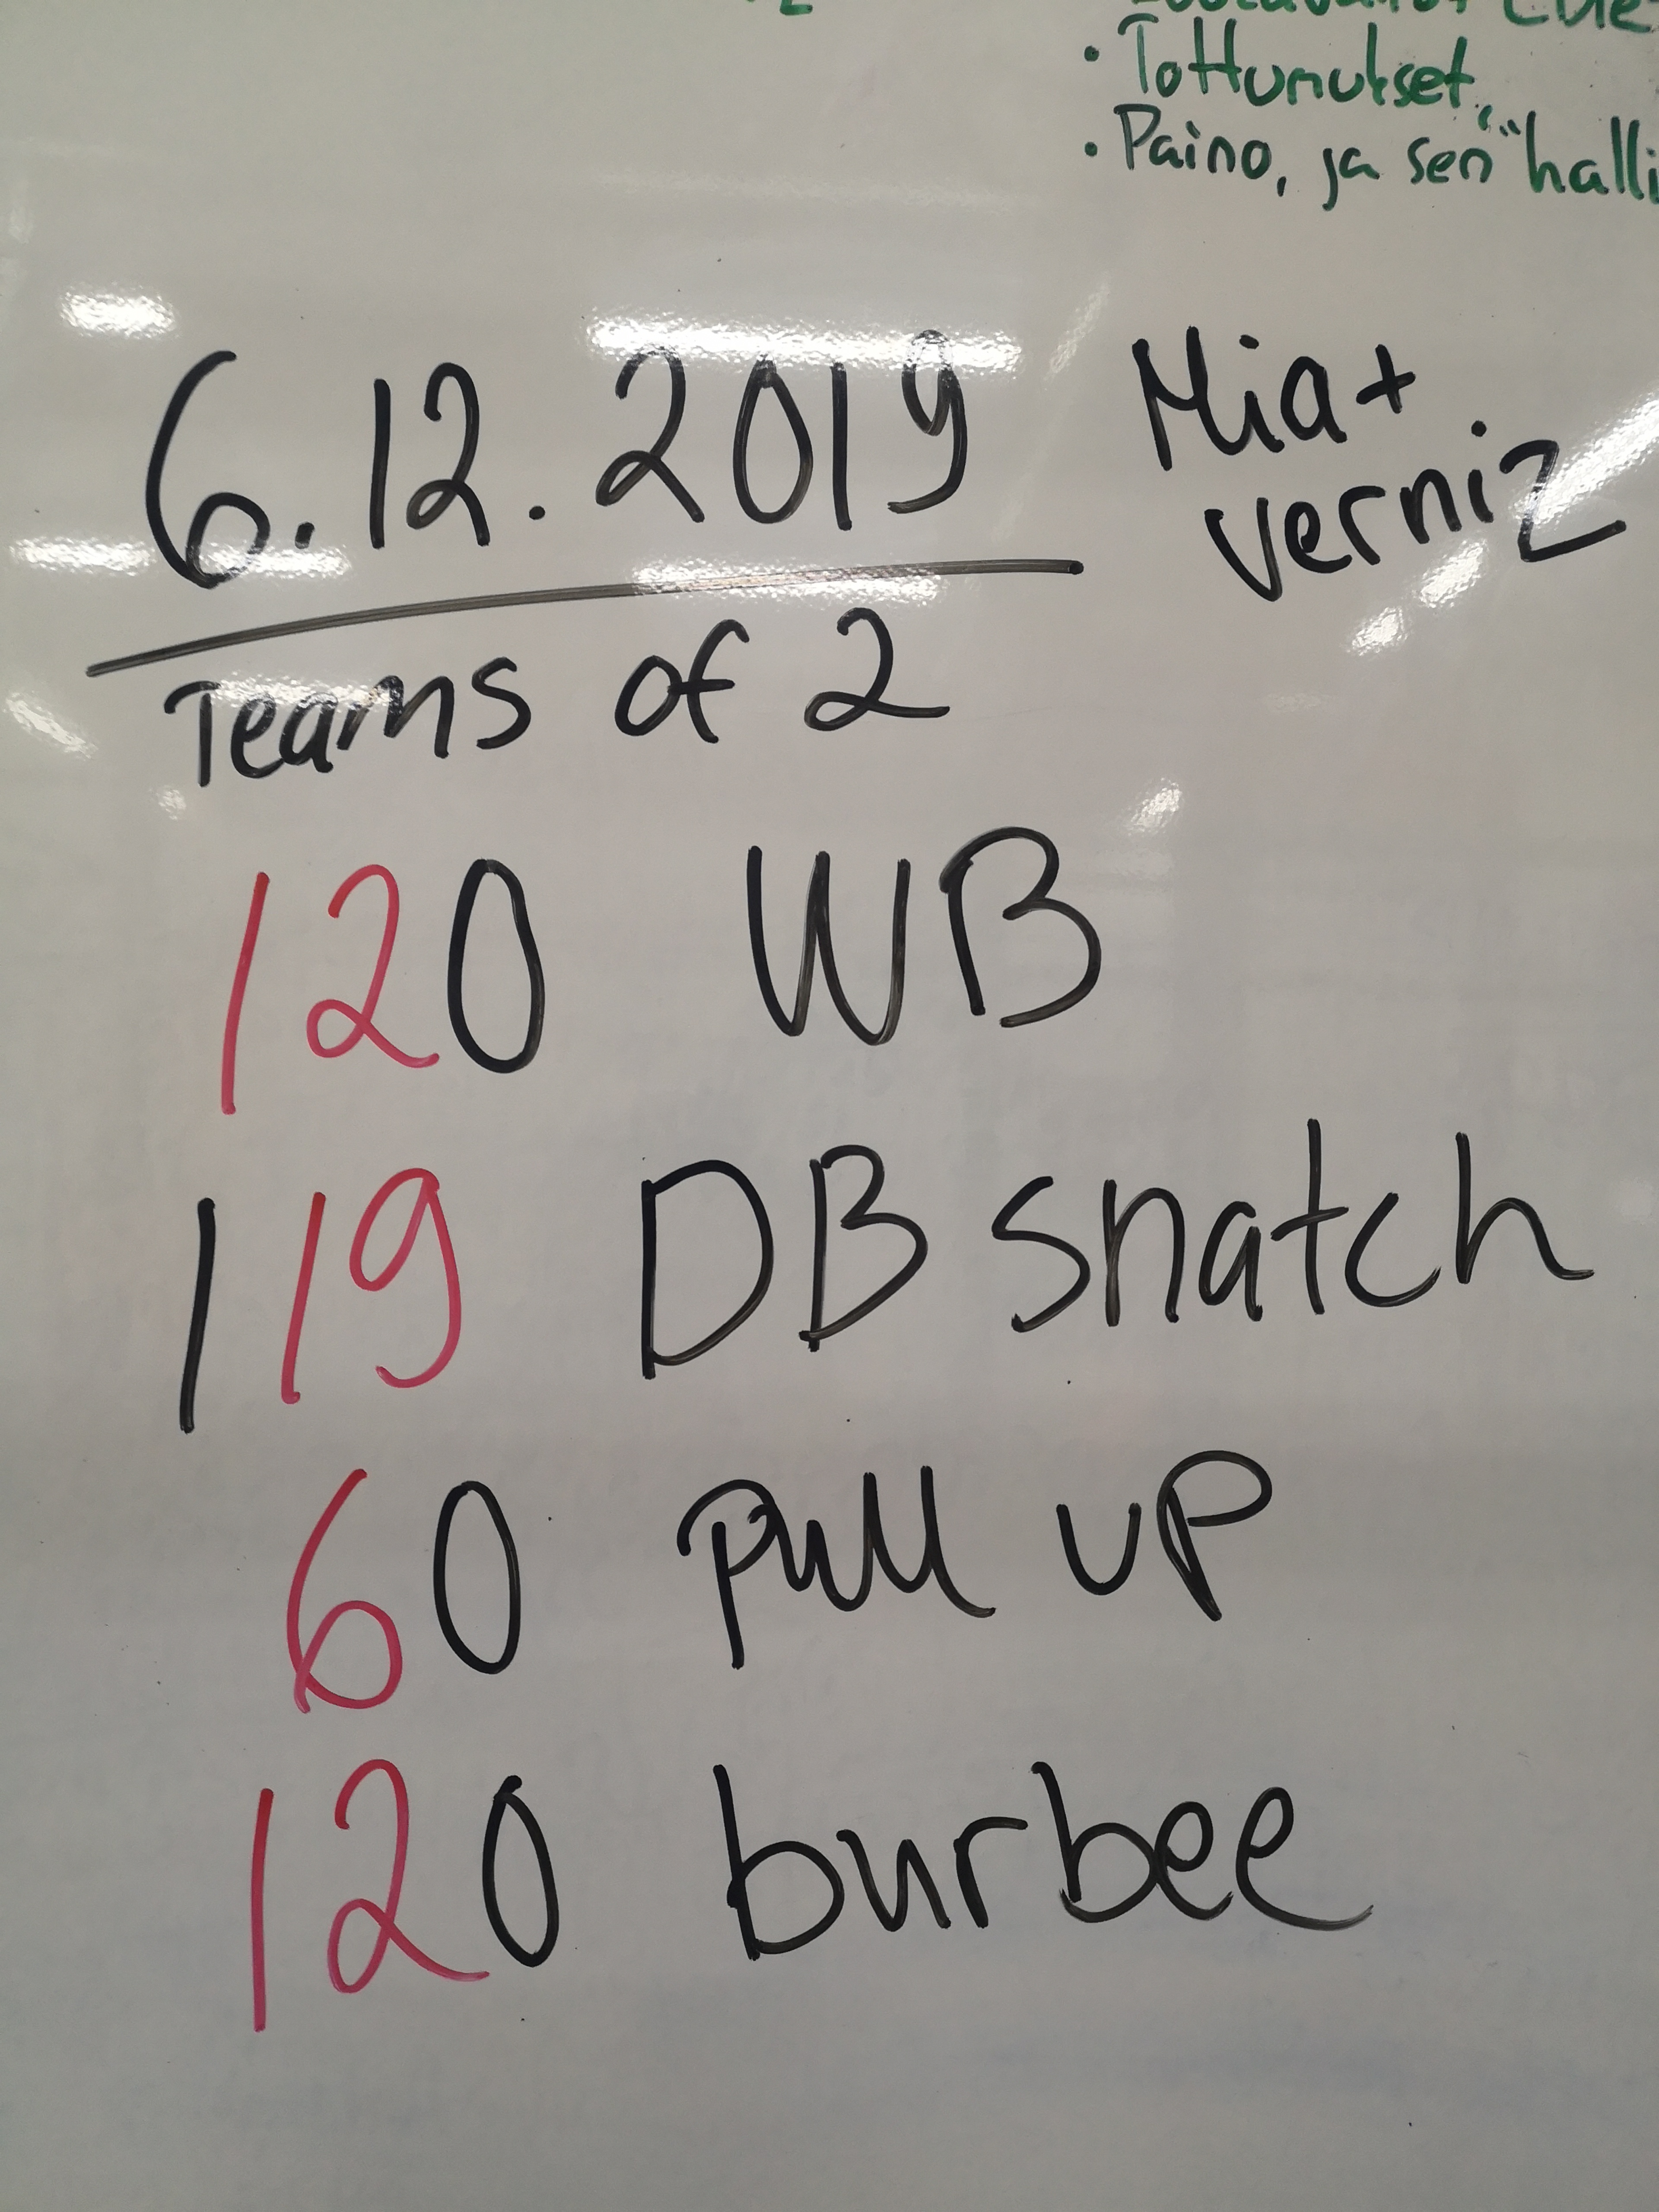 • Tottumukset
• Paino, ja sen "halli
6.12.2019
Mia +
verniz
Teams of 2
120 WB
119 DB snatch
60 pull up
120 burbee